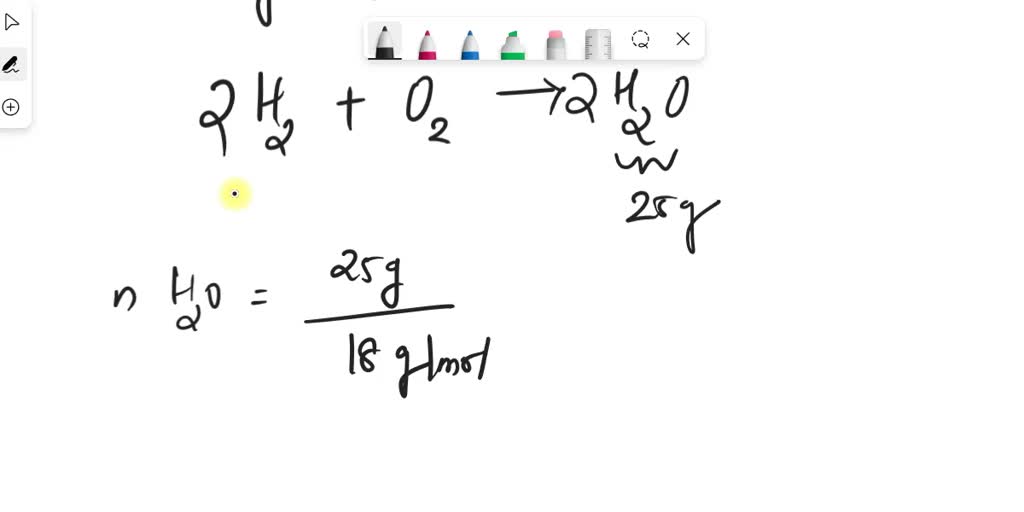 2H₂ + O₂ → 2H₂O
25g
n H₂O = 25g
18 g/mol